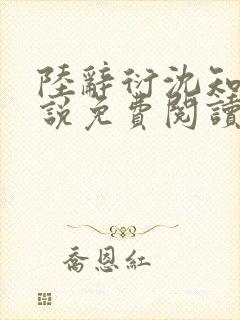 陸辭衍沈知
說免費閱讀
喬恩紅